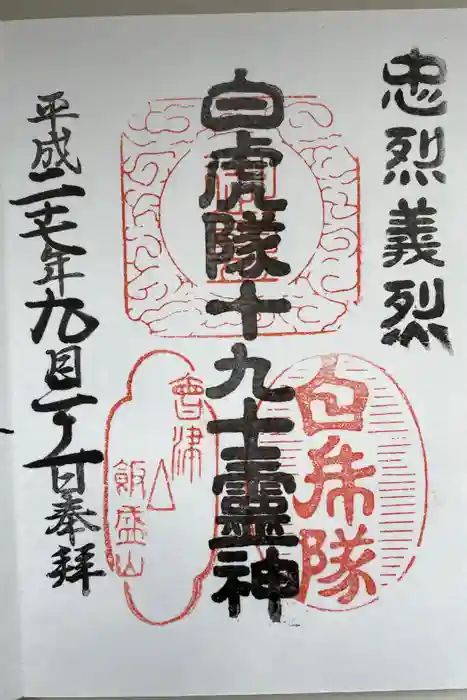 忠烈義烈
白虎隊十九士霊神
白虎隊
會津
飯盛山
平成二十七年九月二十一日奉拝